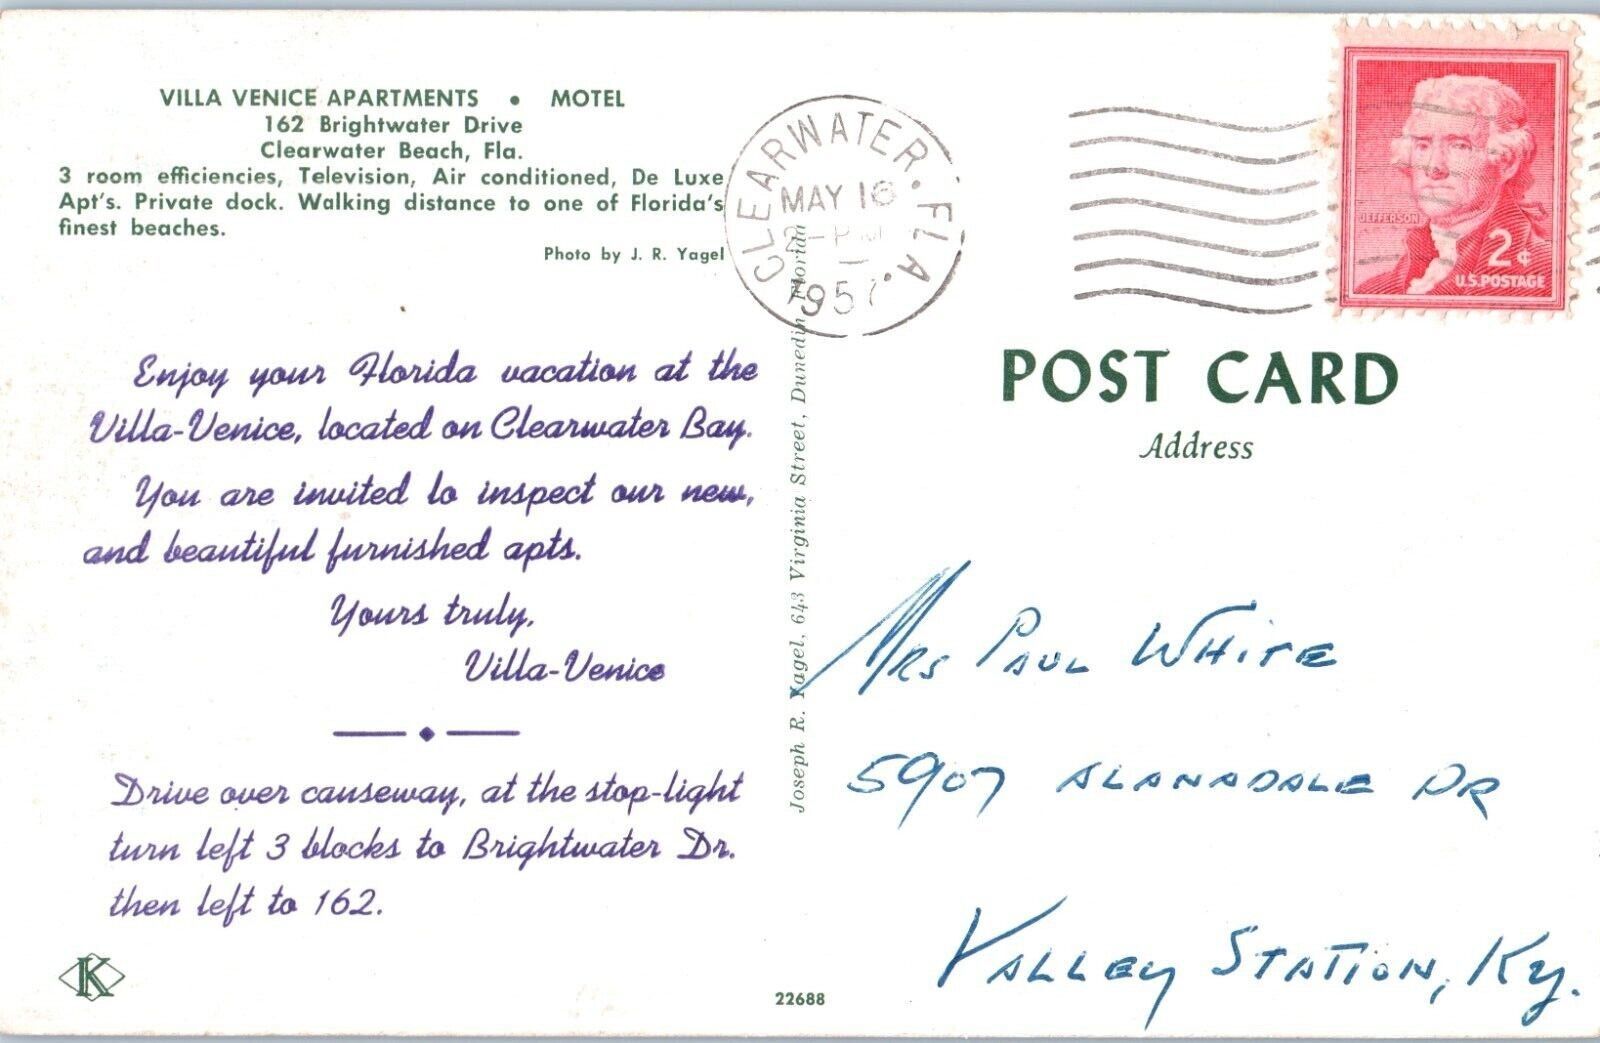 VILLA VENICE APARTMENTS • MOTEL
162 Brightwater Drive
Clearwater Beach, Fla.
3 room efficiencies, Television, Air conditioned, De Luxe
Apt's. Private dock. Walking distance to one of Florida's
finest beaches.
Photo by J. R. Yagel
Enjoy your Florida vacation at the
Villa-Venice, located on Clearwater Bay.
You are invited to inspect our new,
and beautiful furnished apts.
Yours truly,
Villa-Venice
Drive over causeway, at the stop-light
turn left 3 blocks to Brightwater Dr.
then left to 162.
K
22688
Joseph R. Yagel, 643 Virginia Street, Dunedin, Florida
CLEARWATER. FLA.
MAY 16
2-PM
1957
JEFFERSON
2¢
U.S. POSTAGE
POST CARD
Address
MRS PAUL WHITE
5907 ALANADALE DR
VALLEY STATION, KY.